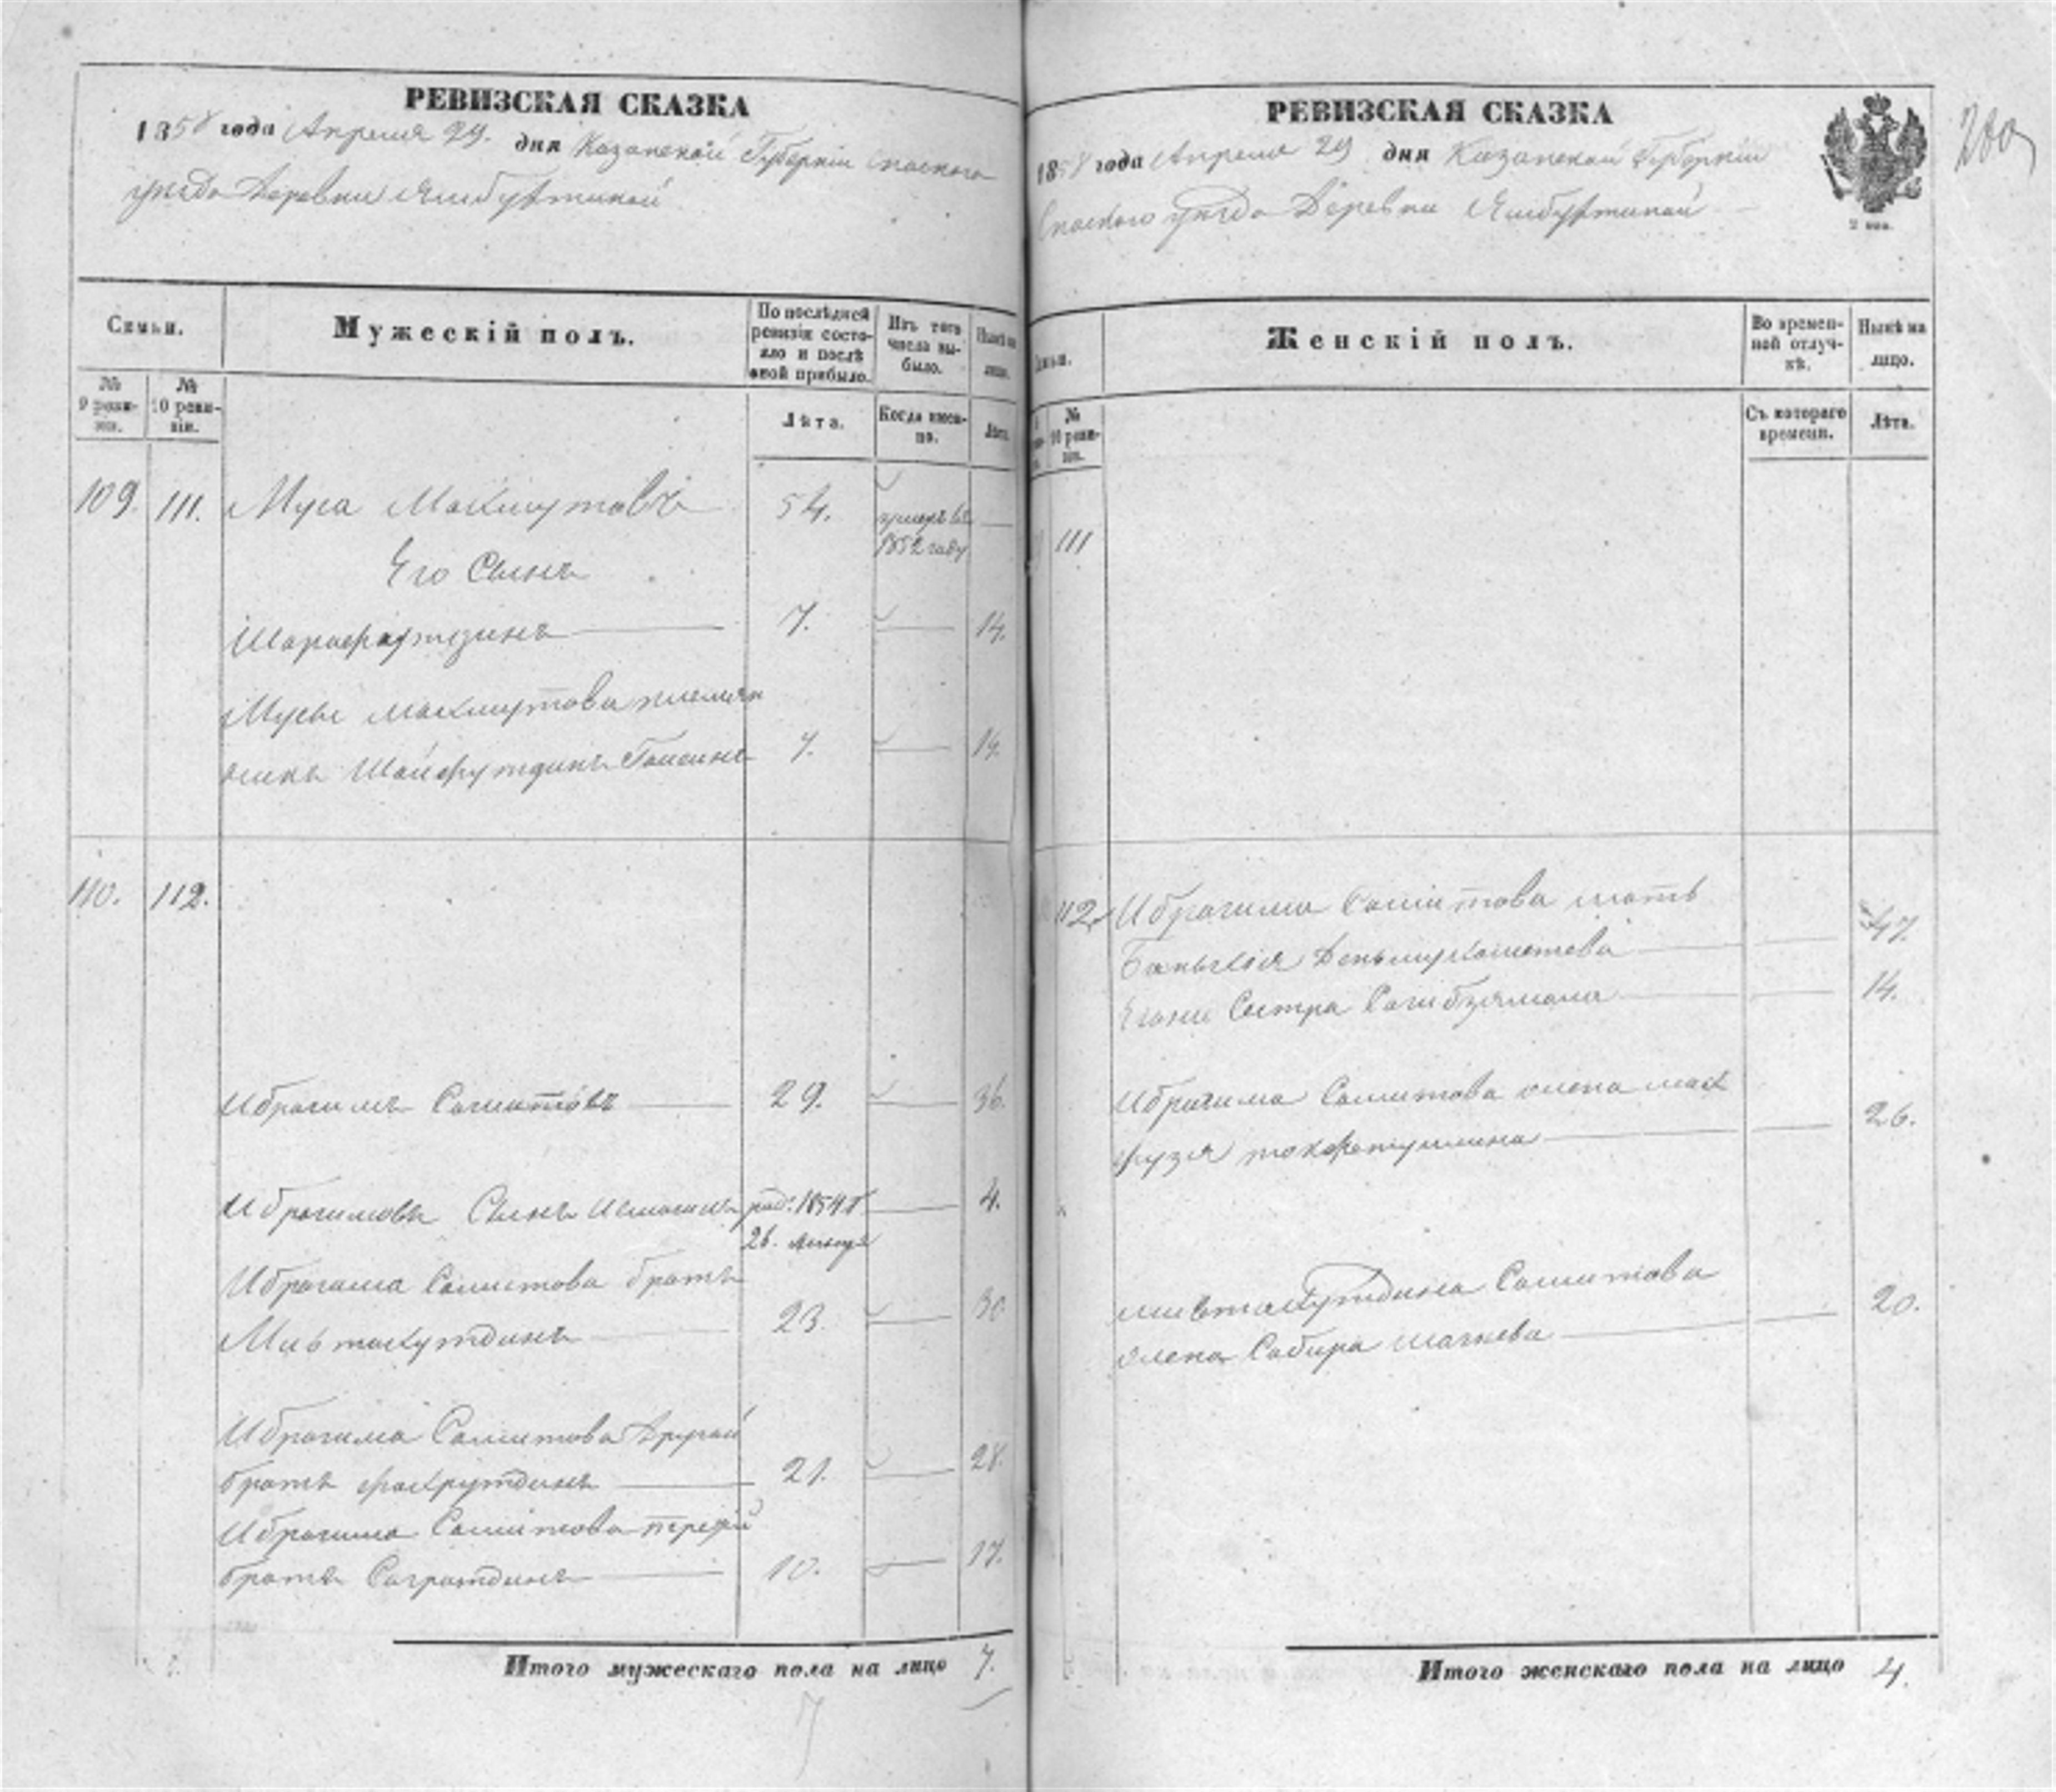 РЕВИЗСКАЯ СКАЗКА
1858 года Апреля 29. дня Казанской Губернии Спаского
уезда Деревни Ямбухтиной
Семьи.
Мужескій полъ.
По послѣдней ревизіи состояло и послѣ оной прибыло.
Изъ того числа выбыло.
Нынѣ на лицо.
№ 9 ревизіи.
№ 10 ревизіи.
Лѣта.
Когда именно.
Лѣта.
109. 111. Муса Макшутовъ 54. умеръ въ —
1852 году
Его Сынъ
Шарафутдинъ — 7. — 14.
Мусы Макшутова племян
никъ Шайфутдинъ 7. — 14.
110. 112.
Ибрагимъ Самитовъ — 29. — 36.
Ибрагимовъ Сынъ род. 1854 г. — 4.
26.
Ибрагима Самитова братъ
Мифтахутдинъ — 23. — 30
Ибрагима Самитова другой
братъ Фахрутдинъ — 21. — 28.
Ибрагима Самитова третій
братъ — 10. — 17.
Итого мужескаго пола на лицо 7.
7
РЕВИЗСКАЯ СКАЗКА
1858 года Апреля 29 дня Казанской Губерніи
Спаского уезда Деревни Ямбухтиной
2 коп.
200
Женскій полъ.
Во временной отлучкѣ.
Нынѣ на лицо.
№ 10 ревизіи.
Съ котораго времени.
Лѣта.
111
112. Ибрагима Самитова мать
— — 47.
Егоже Сестра — — 14.
Ибрагима Самитова жена
— — 26.
Мифтахутдина Самитова
жена Сабира — — 20.
Итого женскаго пола на лицо 4.